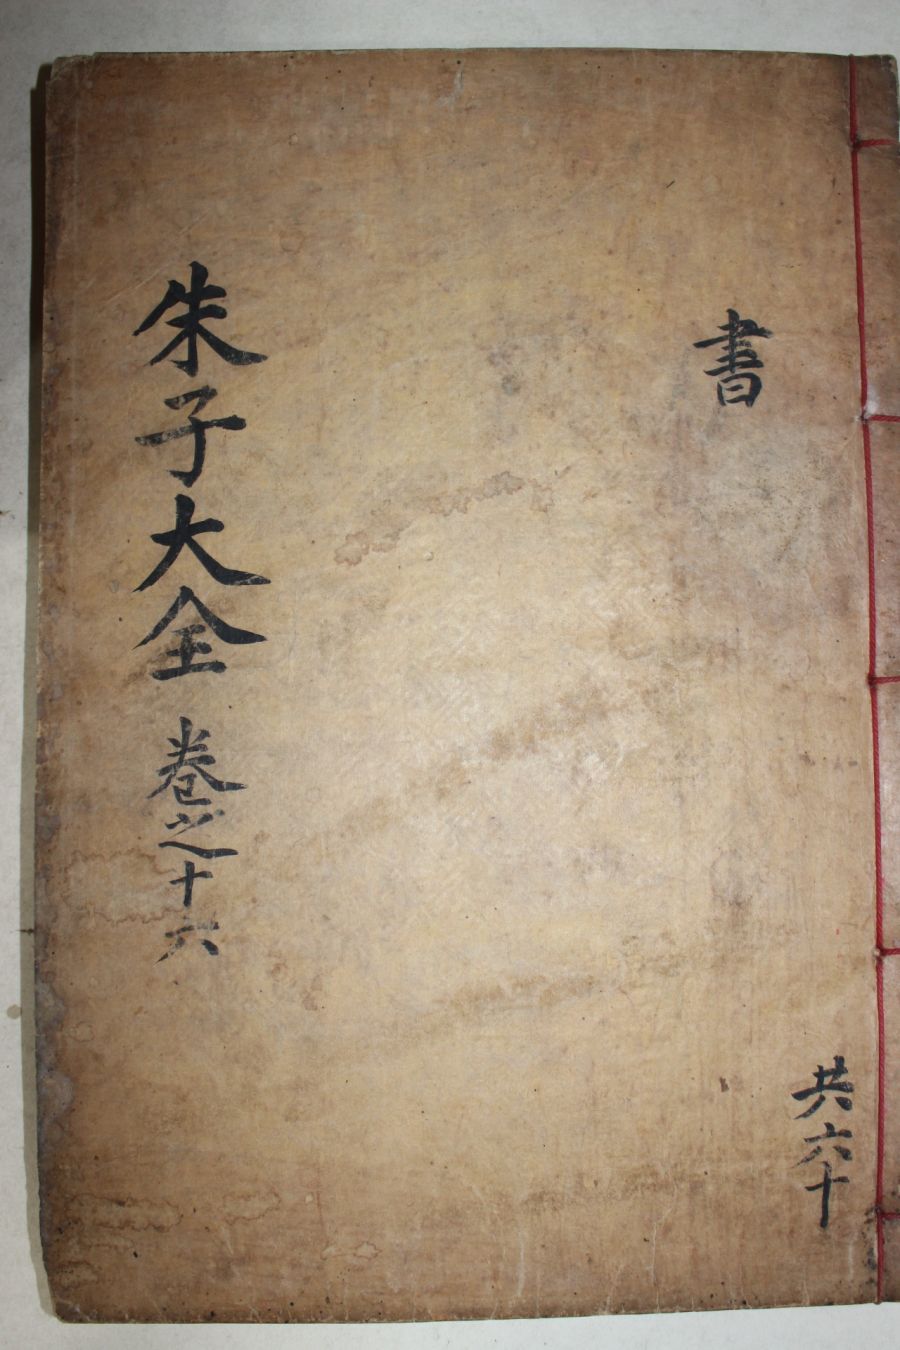 書
共六十
朱子大全 卷之十六